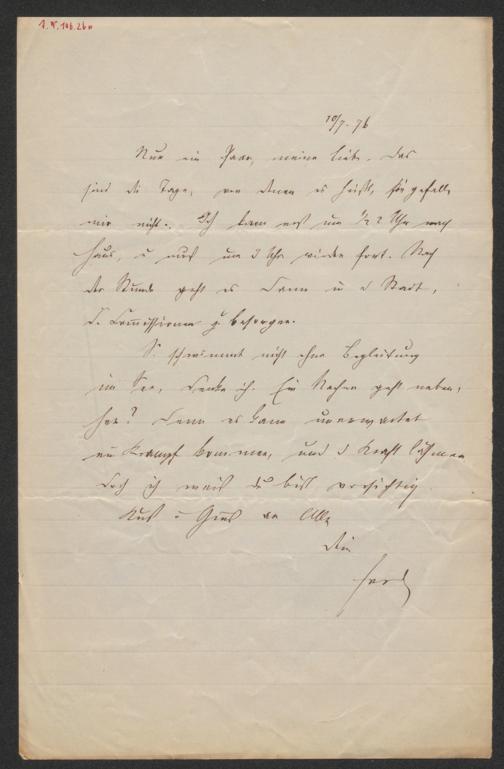 I. N. 106.260
10/7. 76
Nur ein Paar, meine Liebe. Das
sind die Tage, von denen es heißt, sie gefallen
mir nicht. Ich kam erst um ½ 2 Uhr nach
Haus, u muß um 3 Uhr wieder fort. Nach
der Stunde geht es dann in d Stadt,
d. Commissionen zu besorgen.
S. schwimmt nicht ohne Begleitung
im See, denke ich. Ein Nachen geht neben,
her? Denn es kann unerwartet
ein Krampf kommen, und d Kraft lähmen
doch ich weiß du bist vorsichtig
Kuß u Gruß an Alle
Dein
Ferd